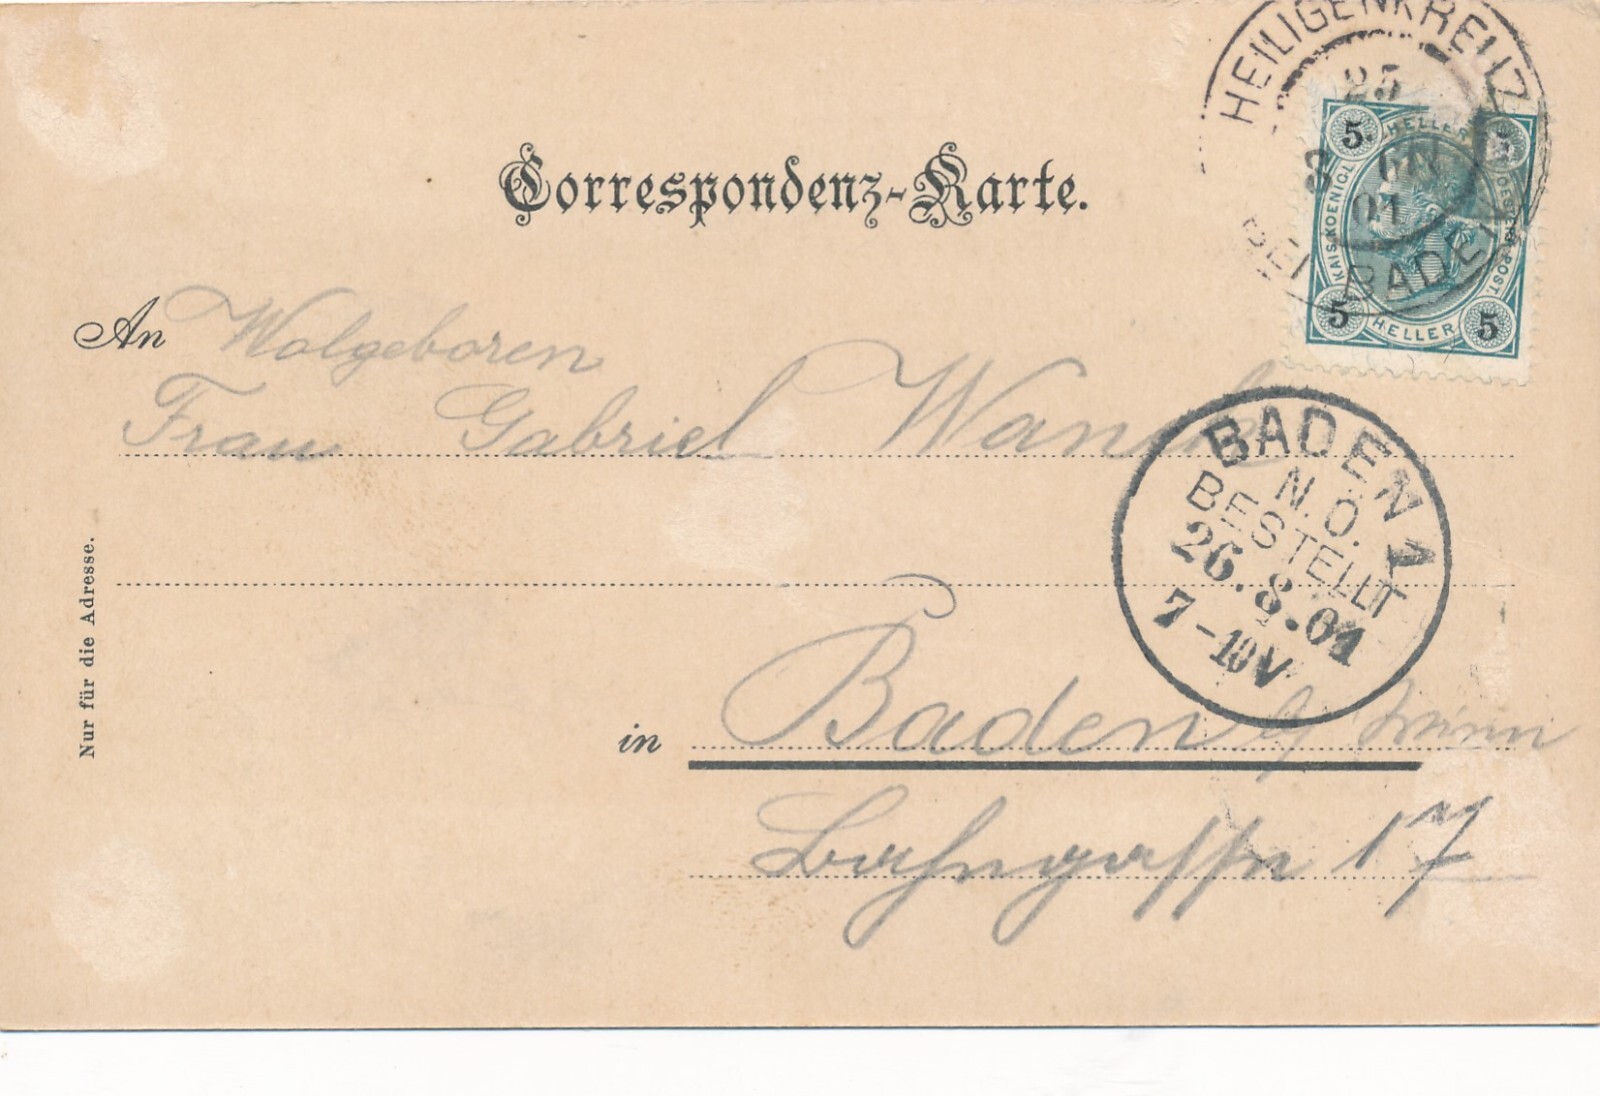 HEILIGENKREUZ
25
8
01
BEI BADEN
5 HELLER 5
KAIS. KOENIGL. OESTERR. POST.
5 HELLER 5
Correspondenz-Karte.
An Wolgeboren
Frau Gabriel
BADEN 1
N. Ö.
BESTELLT
26.8.01
7-10V
in Baden b/ Wien
Bahngasse 17
Nur für die Adresse.